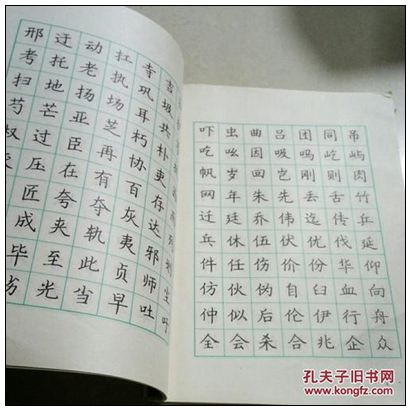 邢 迂 动 扛 寺 吉
考 托 老 执 巩 圾
扫 地 扬 场 耳 共
芍 芒 亚 芝 朽 朴
过 臣 再 协 吏
压 在 有 百 存
匠 夸 夺 灰 达
成 夹 轨 夷 邪
毕 至 此 贞 师 尘
劣 光 当 早 吐 吓
吓 虫 曲 吕 团 同 吊
吃 吆 因 吸 吗 屹 屿
帆 岁 回 岂 刚 则 肉
网 年 朱 先 丢 舌 竹
迁 廷 乔 伟 迄 传 乒
乓 休 伍 伏 优 伐 延
件 任 伤 价 份 华 仰
仿 伙 伪 自 臼 血 向
仲 似 后 伦 伊 行 舟
全 会 杀 合 兆 企 众
孔夫子旧书网
kongfz.com